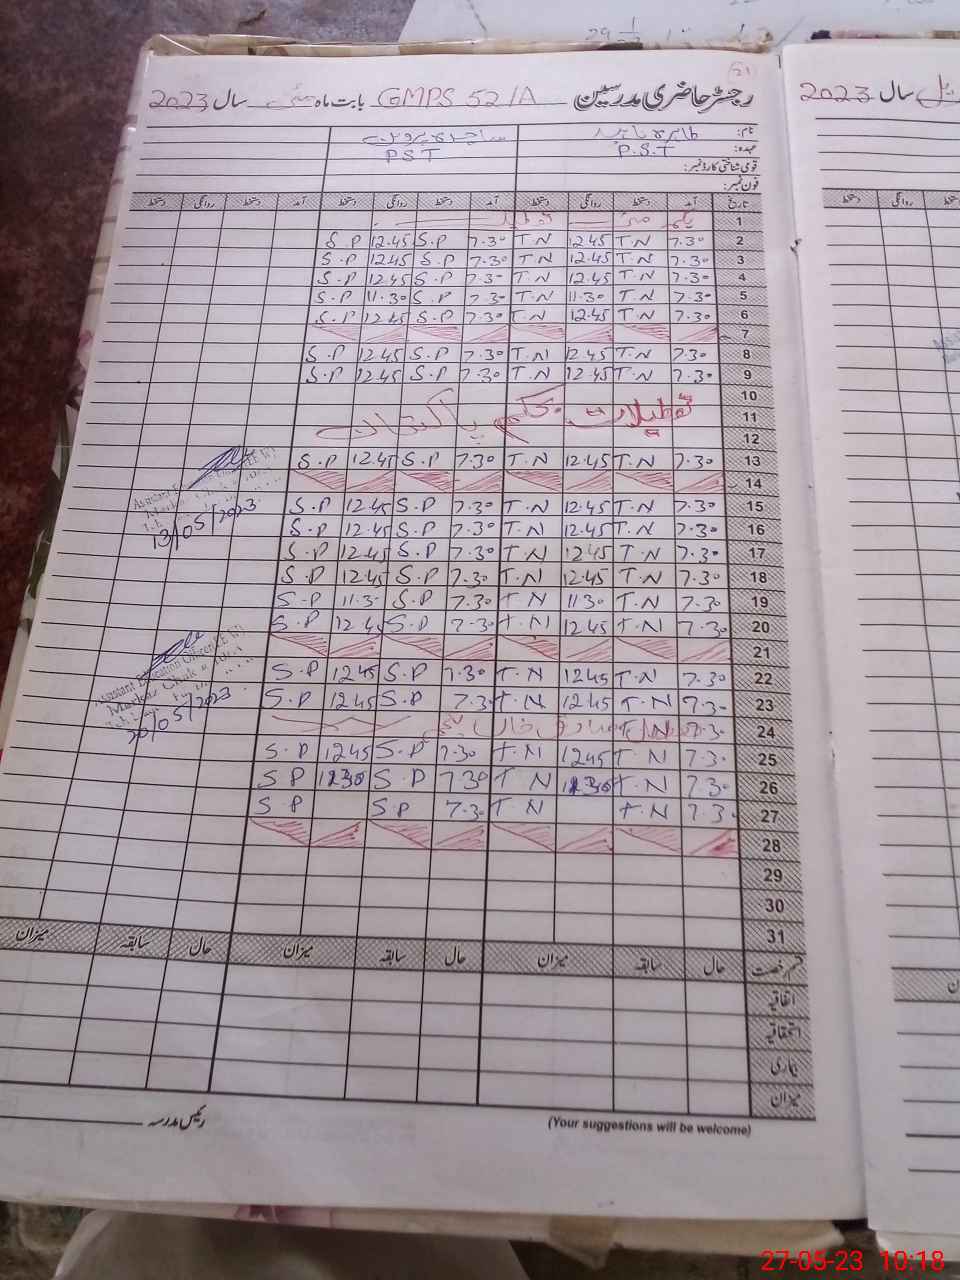 رجسٹر حاضری مدرسین GMPS 52/A بابت ماہ مئی سال 2023
نام: طاہرہ ناہید ساجدہ پروین
عہدہ: P.S.T PST
قومی شناختی کارڈ نمبر:
فون نمبر:
تاریخ آمد دستخط روانگی دستخط آمد دستخط روانگی دستخط آمد دستخط روانگی دستخط
1 یکم مئی
2 7.30 T.N 12.45 T.N 7.30 S.P 12.45 S.P
3 7.30 T.N 12.45 T.N 7.30 S.P 12.45 S.P
4 7.30 T.N 12.45 T.N 7.30 S.P 12.45 S.P
5 7.30 T.N 11.30 T.N 7.30 S.P 11.30 S.P
6 7.30 T.N 12.45 T.N 7.30 S.P 12.45 S.P
7
8 7.30 T.N 12.45 T.N 7.30 S.P 12.45 S.P
9 7.30 T.N 12.45 T.N 7.30 S.P 12.45 S.P
10
11 تعطیلات بحکم
12
13 7.30 T.N 12.45 T.N 7.30 S.P 12.45 S.P
14
15 7.30 T.N 12.45 T.N 7.30 S.P 12.45 S.P
16 7.30 T.N 12.45 T.N 7.30 S.P 12.45 S.P
17 7.30 T.N 12.45 T.N 7.30 S.P 12.45 S.P
18 7.30 T.N 12.45 T.N 7.30 S.P 12.45 S.P
19 7.30 T.N 11.30 T.N 7.30 S.P 11.30 S.P
20 7.30 T.N 12.45 T.N 7.30 S.P 12.45 S.P
21
22 7.30 T.N 12.45 T.N 7.30 S.P 12.45 S.P
23 7.30 T.N 12.45 T.N 7.30 S.P 12.45 S.P
24 7.30 T.N
25 7.30 T.N 12.45 T.N 7.30 S.P 12.45 S.P
26 7.30 T.N 12.30 T.N 7.30 S.P 12.30 S.P
27 7.30 T.N T.N 7.30 S.P S.P
28
29
30
31
13/05/2023
Assistant Education Officer
20/05/2023
قسم رخصت حال سابقہ میزان حال سابقہ میزان حال سابقہ میزان
اتفاقیہ
استحقاقیہ
بیماری
میزان
(Your suggestions will be welcome)
رئیس مدرسہ
سال 2023
27-05-23 10:18